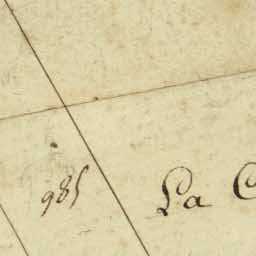 985
La C